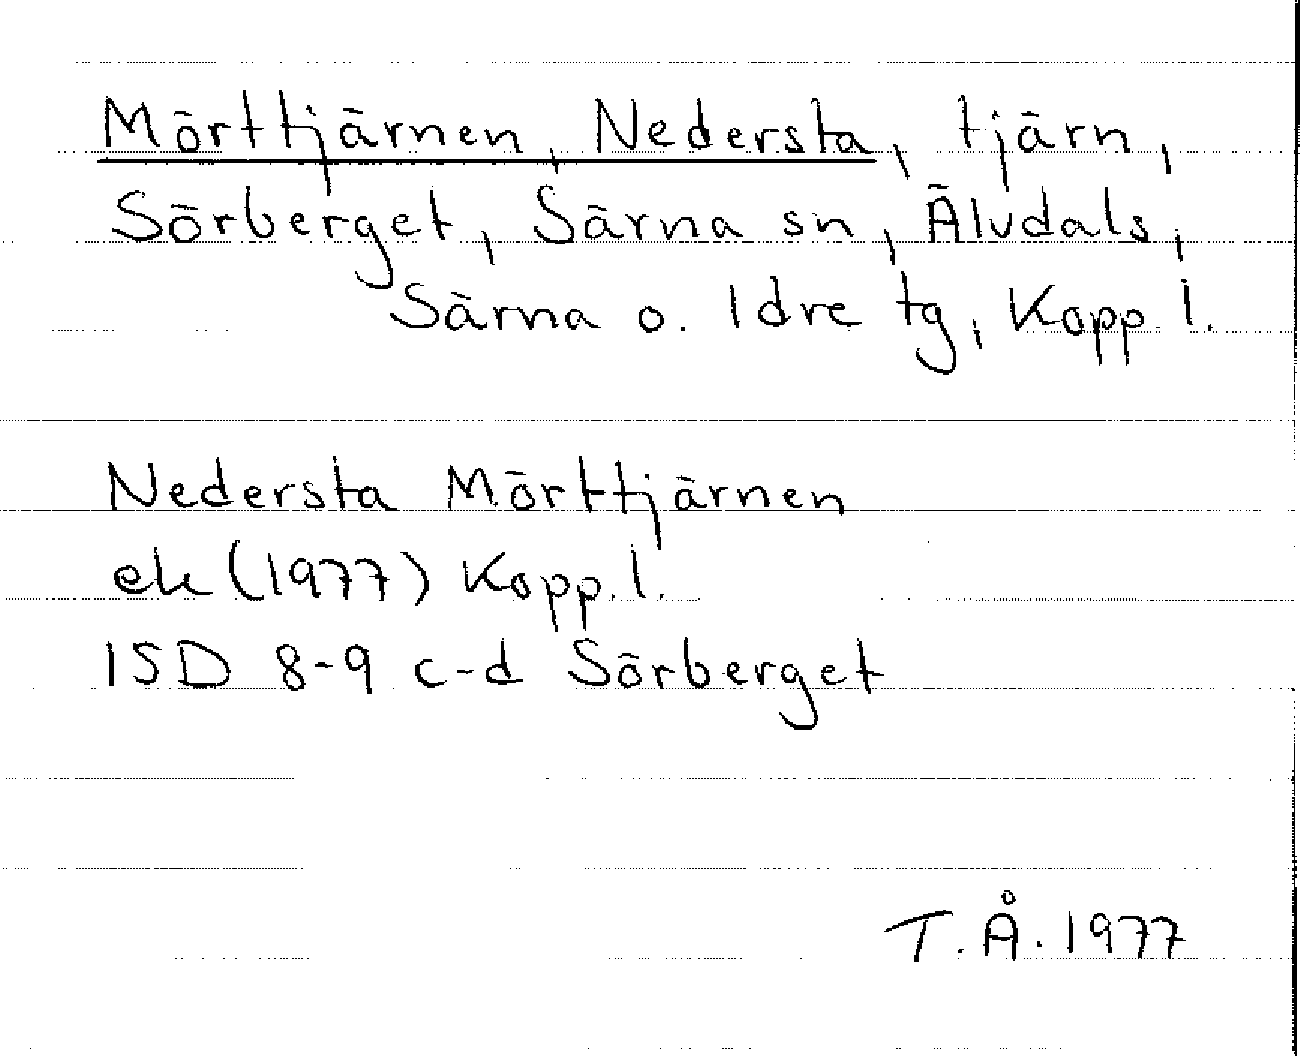 Mörttjärnen, Nedersta, tjärn,
Sörberget, Särna sn, Älvdals,
Särna o. Idre tg, Kopp. l.
Nedersta Mörttjärnen
ek (1977) Kopp. l.
15D 8-9 c-d Sörberget
T.Å. 1977